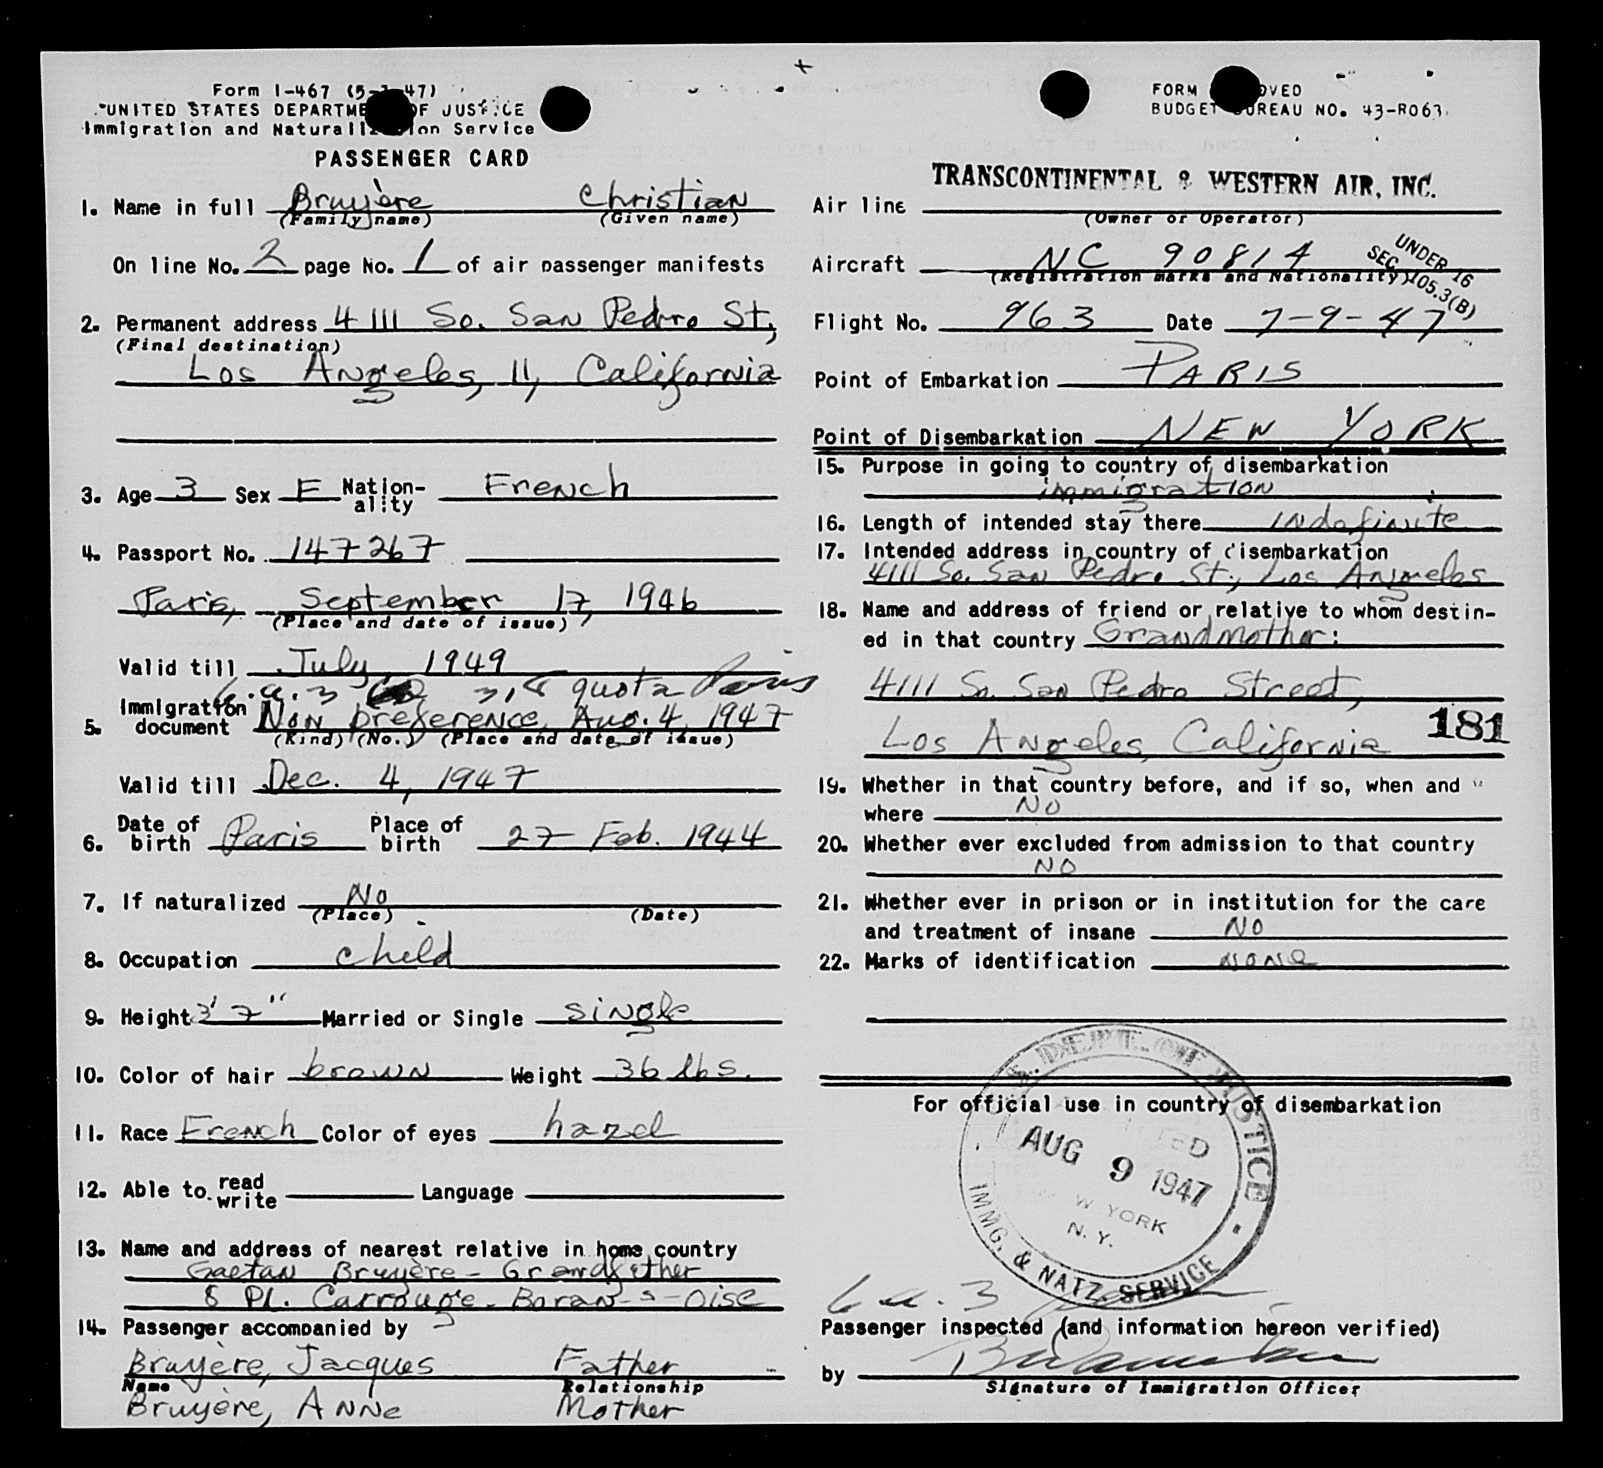 Form I-467 (5-1-47)
UNITED STATES DEPARTMENT OF JUSTICE
Immigration and Naturalization Service
PASSENGER CARD
1. Name in full Bruyère Christian
(Family name) (Given name)
On line No. 2 page No. 1 of air passenger manifests
2. Permanent address 4111 So. San Pedro St,
(Final destination)
Los Angeles, 11, California
3. Age 3 Sex F Nation-
ality French
4. Passport No. 147267
Paris, September 17, 1946
(Place and date of issue)
Valid till July 1949
quota Paris
5. Immigration
document Non preference, Aug. 4, 1947
(Kind) (No.) (Place and date of issue)
Valid till Dec. 4, 1947
6. Date of
birth Paris Place of
birth 27 Feb. 1944
7. If naturalized No
(Place) (Date)
8. Occupation child
9. Height 3' 7" Married or Single single
10. Color of hair brown Weight 36 lbs.
11. Race French Color of eyes hazel
12. Able to read
write Language
13. Name and address of nearest relative in home country
Gaetan Bruyère - Grandfather
8 Pl. Carrouge - Boran-s-Oise
14. Passenger accompanied by
Bruyère, Jacques Father
Name Relationship
Bruyère, Anne Mother
FORM APPROVED
BUDGET BUREAU NO. 43-R063.
TRANSCONTINENTAL & WESTERN AIR, INC.
Air line
(Owner or Operator)
Aircraft NC 90814
(Registration marks and Nationality)
UNDER 16
SEC. 105.3(B)
Flight No. 963 Date 7-9-47
Point of Embarkation PARIS
Point of Disembarkation NEW YORK
15. Purpose in going to country of disembarkation
immigration
16. Length of intended stay there indefinite
17. Intended address in country of disembarkation
4111 So. San Pedro St., Los Angeles
18. Name and address of friend or relative to whom destin-
ed in that country Grandmother:
4111 So. San Pedro Street,
Los Angeles, California
181
19. Whether in that country before, and if so, when and
where No
20. Whether ever excluded from admission to that country
No
21. Whether ever in prison or in institution for the care
and treatment of insane No
22. Marks of identification none
For official use in country of disembarkation
U.S. DEPT. OF JUSTICE
AUG 9 1947
NEW YORK
N. Y.
IMMG. & NATZ. SERVICE
Passenger inspected (and information hereon verified)
by
Signature of Immigration Officer